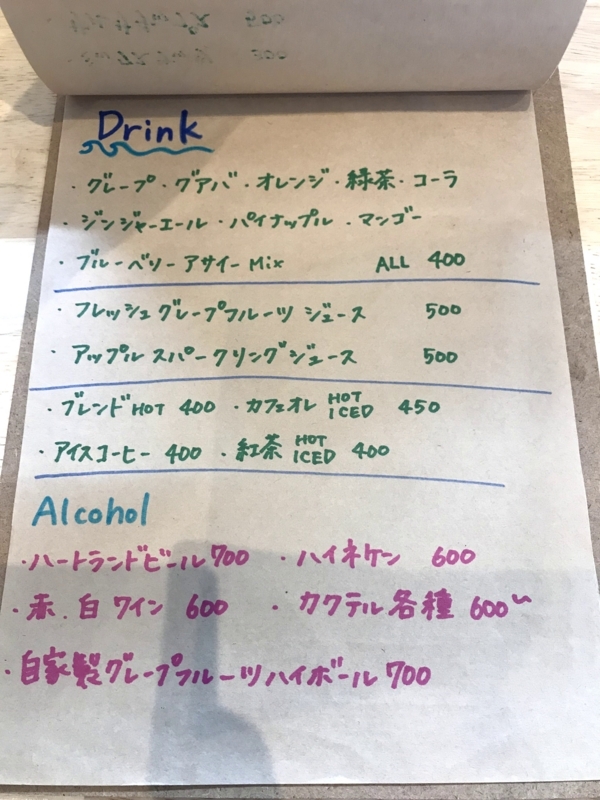 Drink
・グレープ・グアバ・オレンジ・緑茶・コーラ
・ジンジャーエール・パイナップル・マンゴー
・ブルーベリーアサイーMix ALL 400
・フレッシュグレープフルーツジュース 500
・アップルスパークリングジュース 500
・ブレンドHOT 400 ・カフェオレ HOT ICED 450
・アイスコーヒー 400 ・紅茶 HOT ICED 400
Alcohol
・ハートランドビール 700 ・ハイネケン 600
・赤.白ワイン 600 ・カクテル各種 600〜
・自家製グレープフルーツハイボール 700